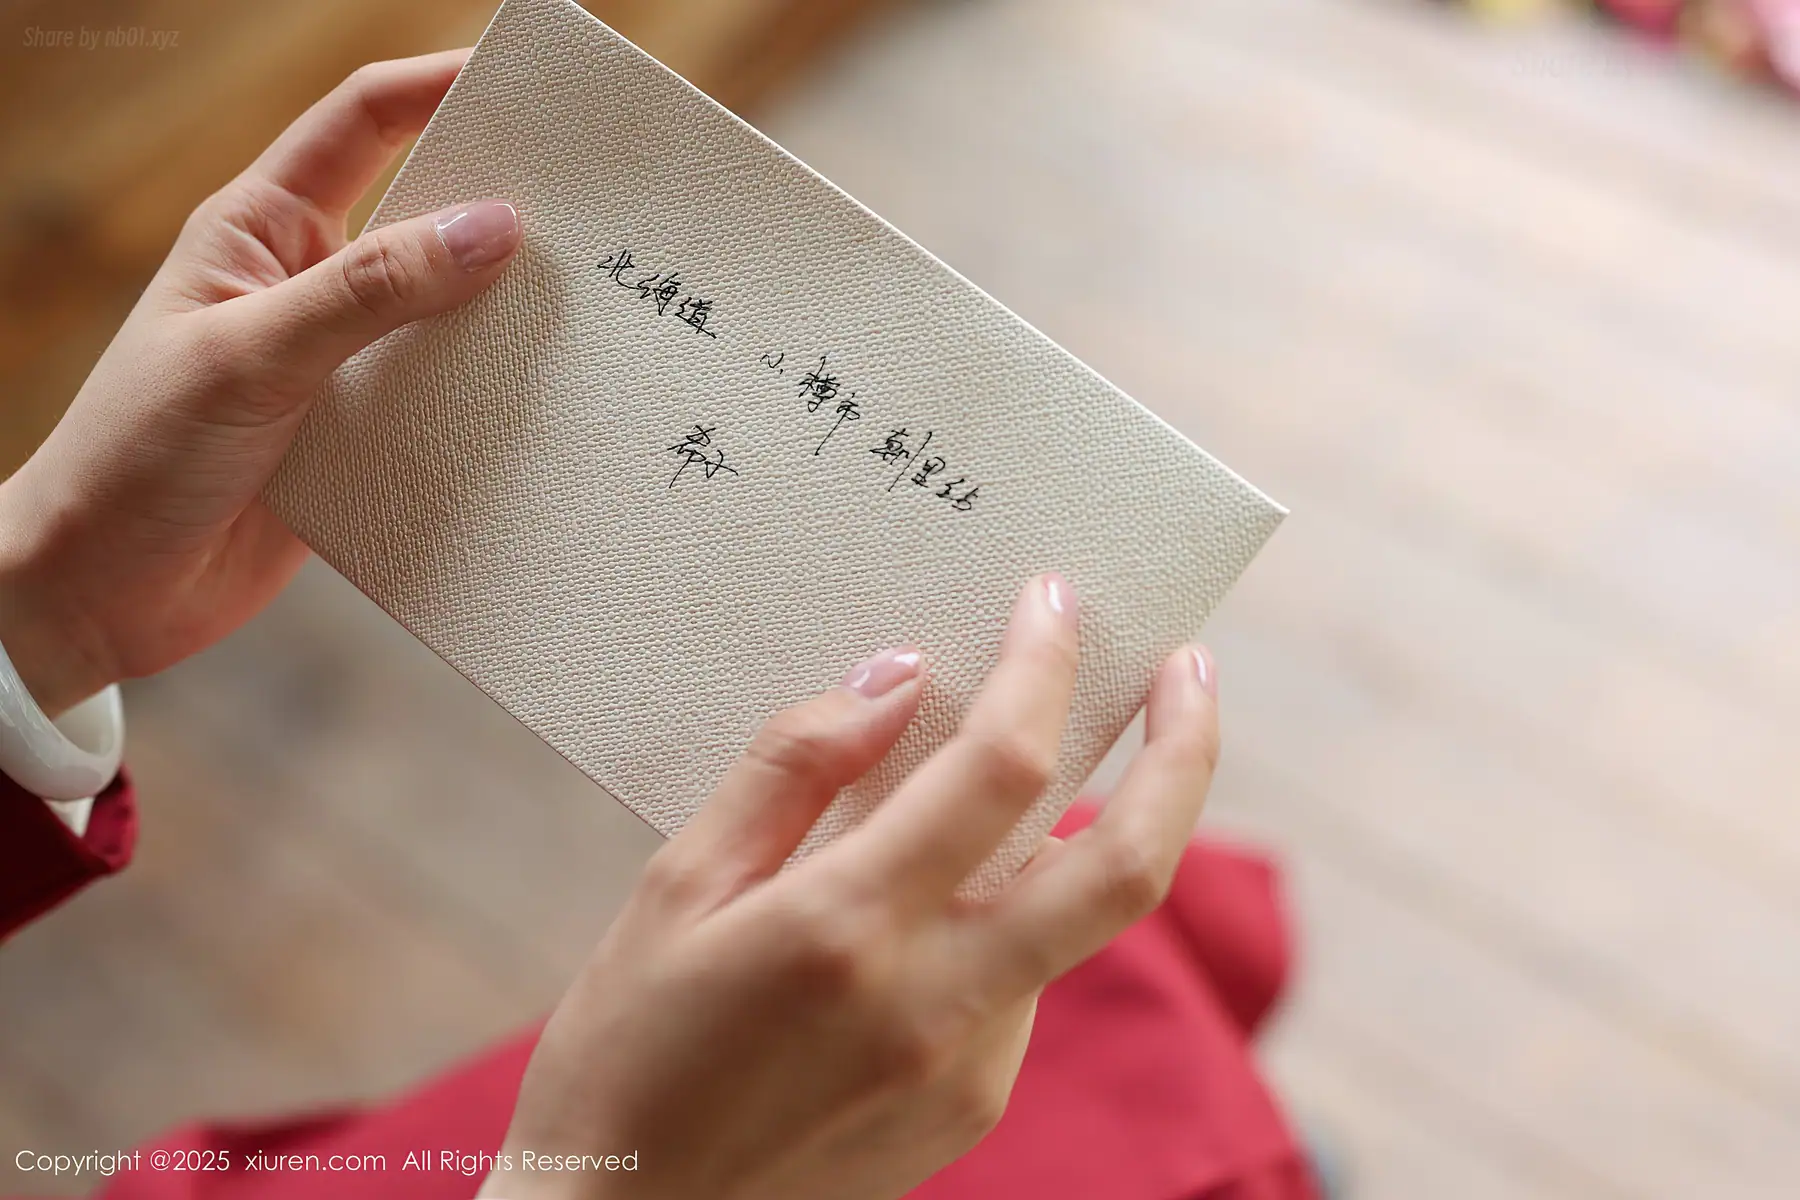 Share by nb01.xyz
北海道 小樽市 朝里站
希子
Copyright @2025 xiuren.com All Rights Reserved